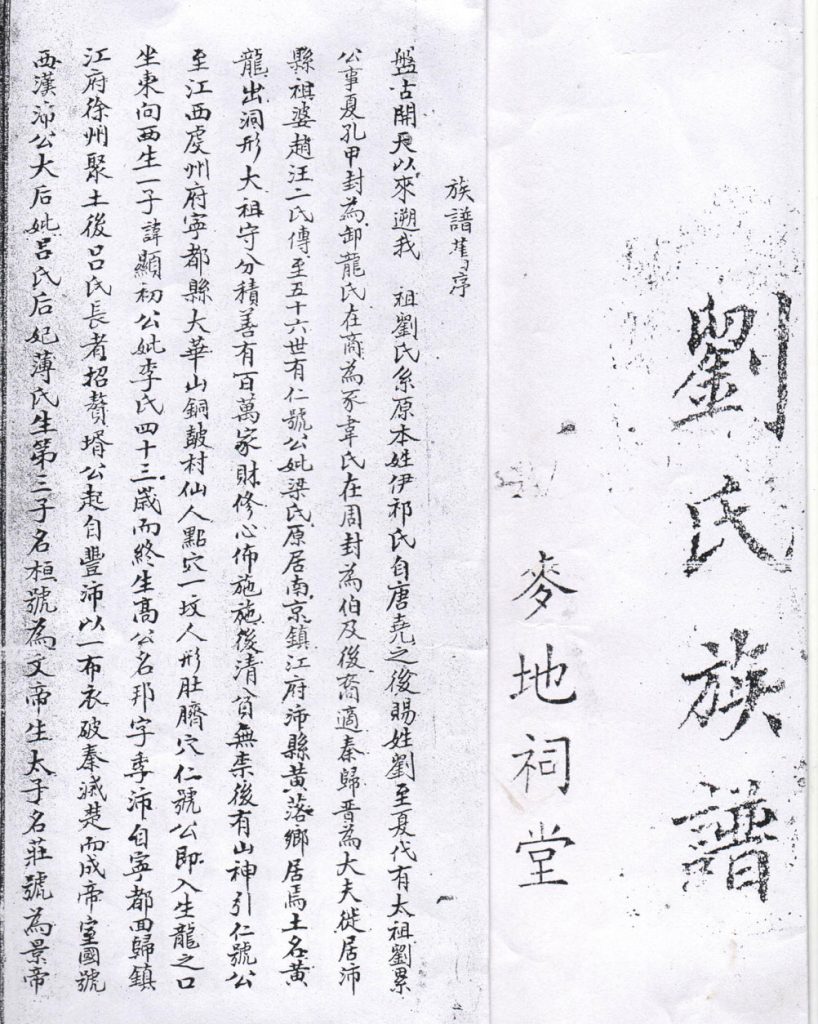 劉氏族譜
麥地祠堂
族譜舊序
盤古開天以來遡我 祖劉氏系原本姓伊祁氏自唐堯之後賜姓劉至夏代有太祖劉累
公事夏孔甲封為卸龍氏在商為豕韋氏在周封為伯及後裔適秦歸晋為大夫徙居沛
縣祖婆趙汪二氏傳至五十六世有仁號公妣梁氏原居南京鎮江府沛縣黄落鄉居焉土名黄
龍出洞形大祖守分積善有百萬家財修心佈施施後清貧無柰後有山神引仁號公
至江西虔州府寧都縣大華山銅皷村仙人點穴一坟人形肚臍穴仁號公即入生龍之口
坐東向西生一子諱顯初公妣李氏四十三歲而終生髙公名邦字季沛自寧都回歸鎮
江府徐州聚土後吕氏長者招贅壻公起自豐沛以一布衣破秦滅楚而成帝室國號
西漢沛公大后妣吕氏后妃薄氏生第三子名桓號為文帝生太子名莊號為景帝